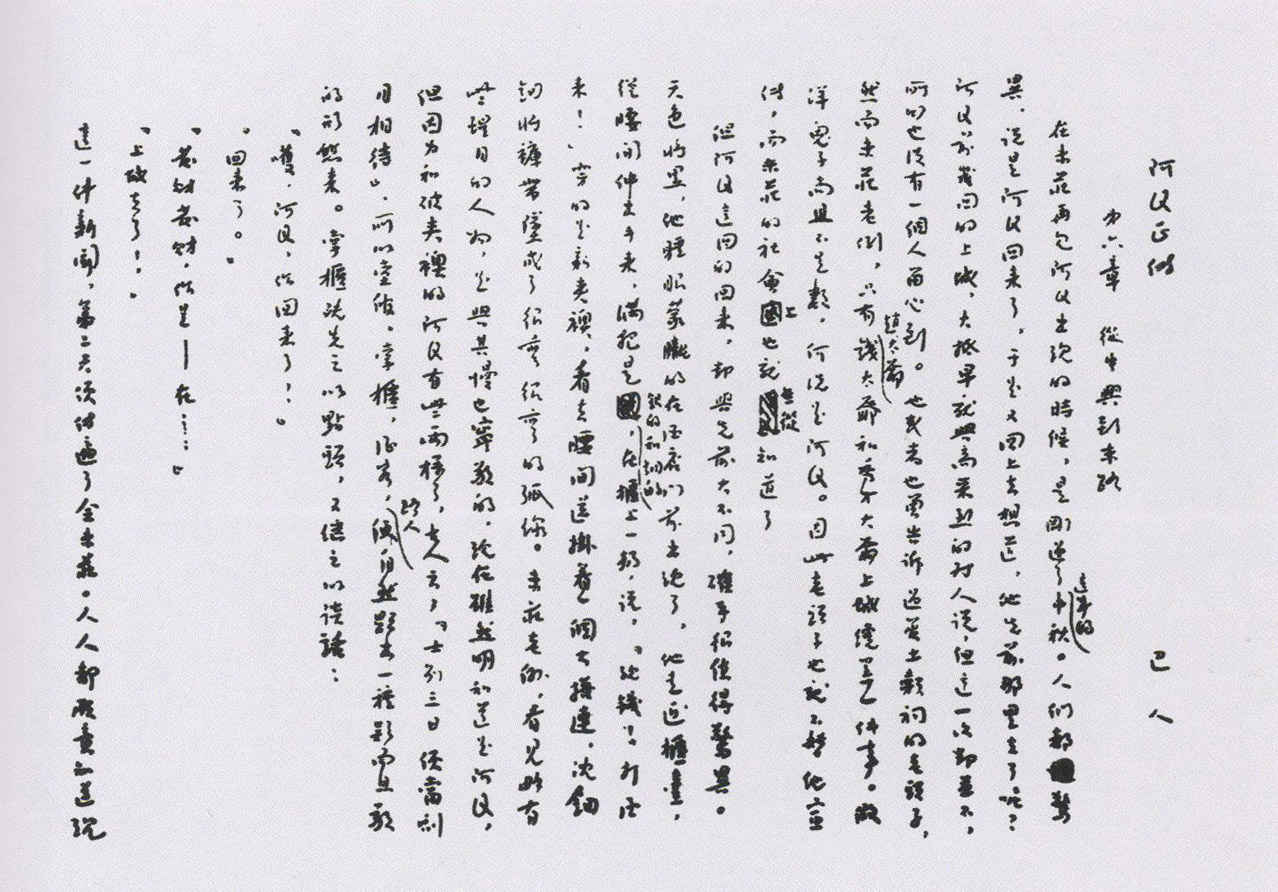 阿Q正傳 巴人
第六章 從中興到末路
在未莊再見阿Q出現的時候，是剛過了這年的中秋。人們都驚
異，說是阿Q回來了，于是又回上去想道，他先前那里去了呢？
阿Q前幾回的上城，大抵早就興高采烈的對人說，但這一次卻並不，
所以也沒有一個人留心到。他或者也曾告訴過管土穀祠的老頭子，
然而未莊老例，只有趙太爺錢太爺和秀才大爺上城纔算一件事。假
洋鬼子尚且不足數，何況是阿Q。因此老頭子也就不替他宣
傳，而未莊的社會上也就無從知道了
但阿Q這回的回來，卻與先前大不同，確乎很值得驚異。
天色將黑，他睡眼蒙朧的在酒店門前出現了，他走近櫃臺，
從腰間伸出手來，滿把是銀的和銅的，在櫃上一扔，說，「現錢！打酒
來！」穿的是新夾襖，看去腰間還掛着一個大搭連，沈鈿
鈿的將褲帶墜成了很彎很彎的弧線。未莊老例，看見略有
些醒目的人物，是與其慢也寧敬的，現在雖然明知道是阿Q，
但因为和破夾襖的阿Q有些兩樣了，古人云，「士別三日便當刮
目相待」，所以堂倌，掌櫃，酒客，路人，便自然顯出一種疑而且敬
的形態來。掌櫃既先之以點頭，又繼之以談話：
「嚄，阿Q，你回來了！」
「回來了。」
「發財發財，你是——在……」
「上城去了！」
這一件新聞，第二天便傳遍了全未莊。人人都願意知道現